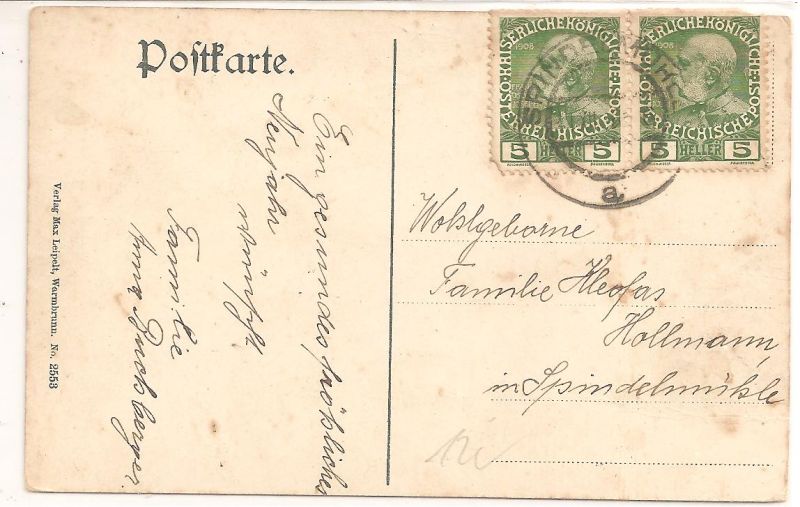 Postkarte.
Ein gesundes, fröhliches
Neujahr
wünscht
Familie
Anna
Verlag Max Leipelt, Warmbrunn. No. 2553
KAISERLICHE KÖNIGLICHE
ÖSTERREICHISCHE POST
1908
5 HELLER 5
KAISERLICHE KÖNIGLICHE
ÖSTERREICHISCHE POST
1908
5 HELLER 5
a
Wohlgeborne
Familie Kleofas
Hollmann,
in Spindelmühle